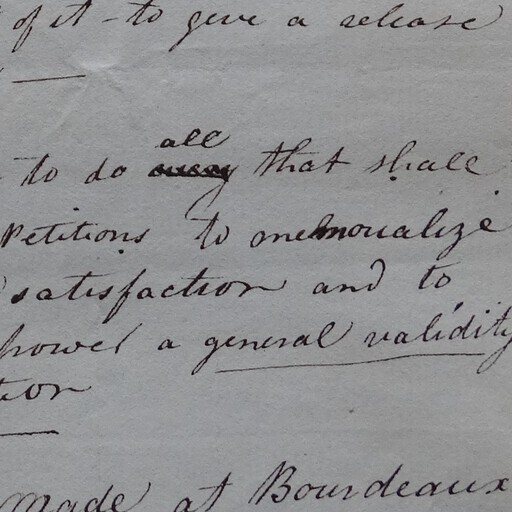 of it - to give a release
all
to do every that shall
Petitions to memorialize
satisfaction and to
power a general validity
tion
made at Bourdeaux